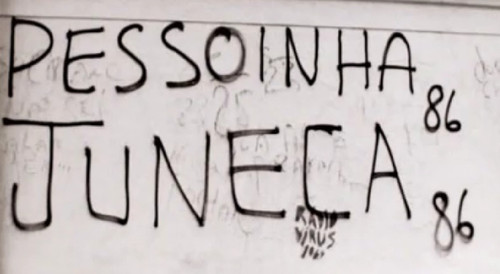 PESSOINHA 86
JUNECA 86
VIRUS